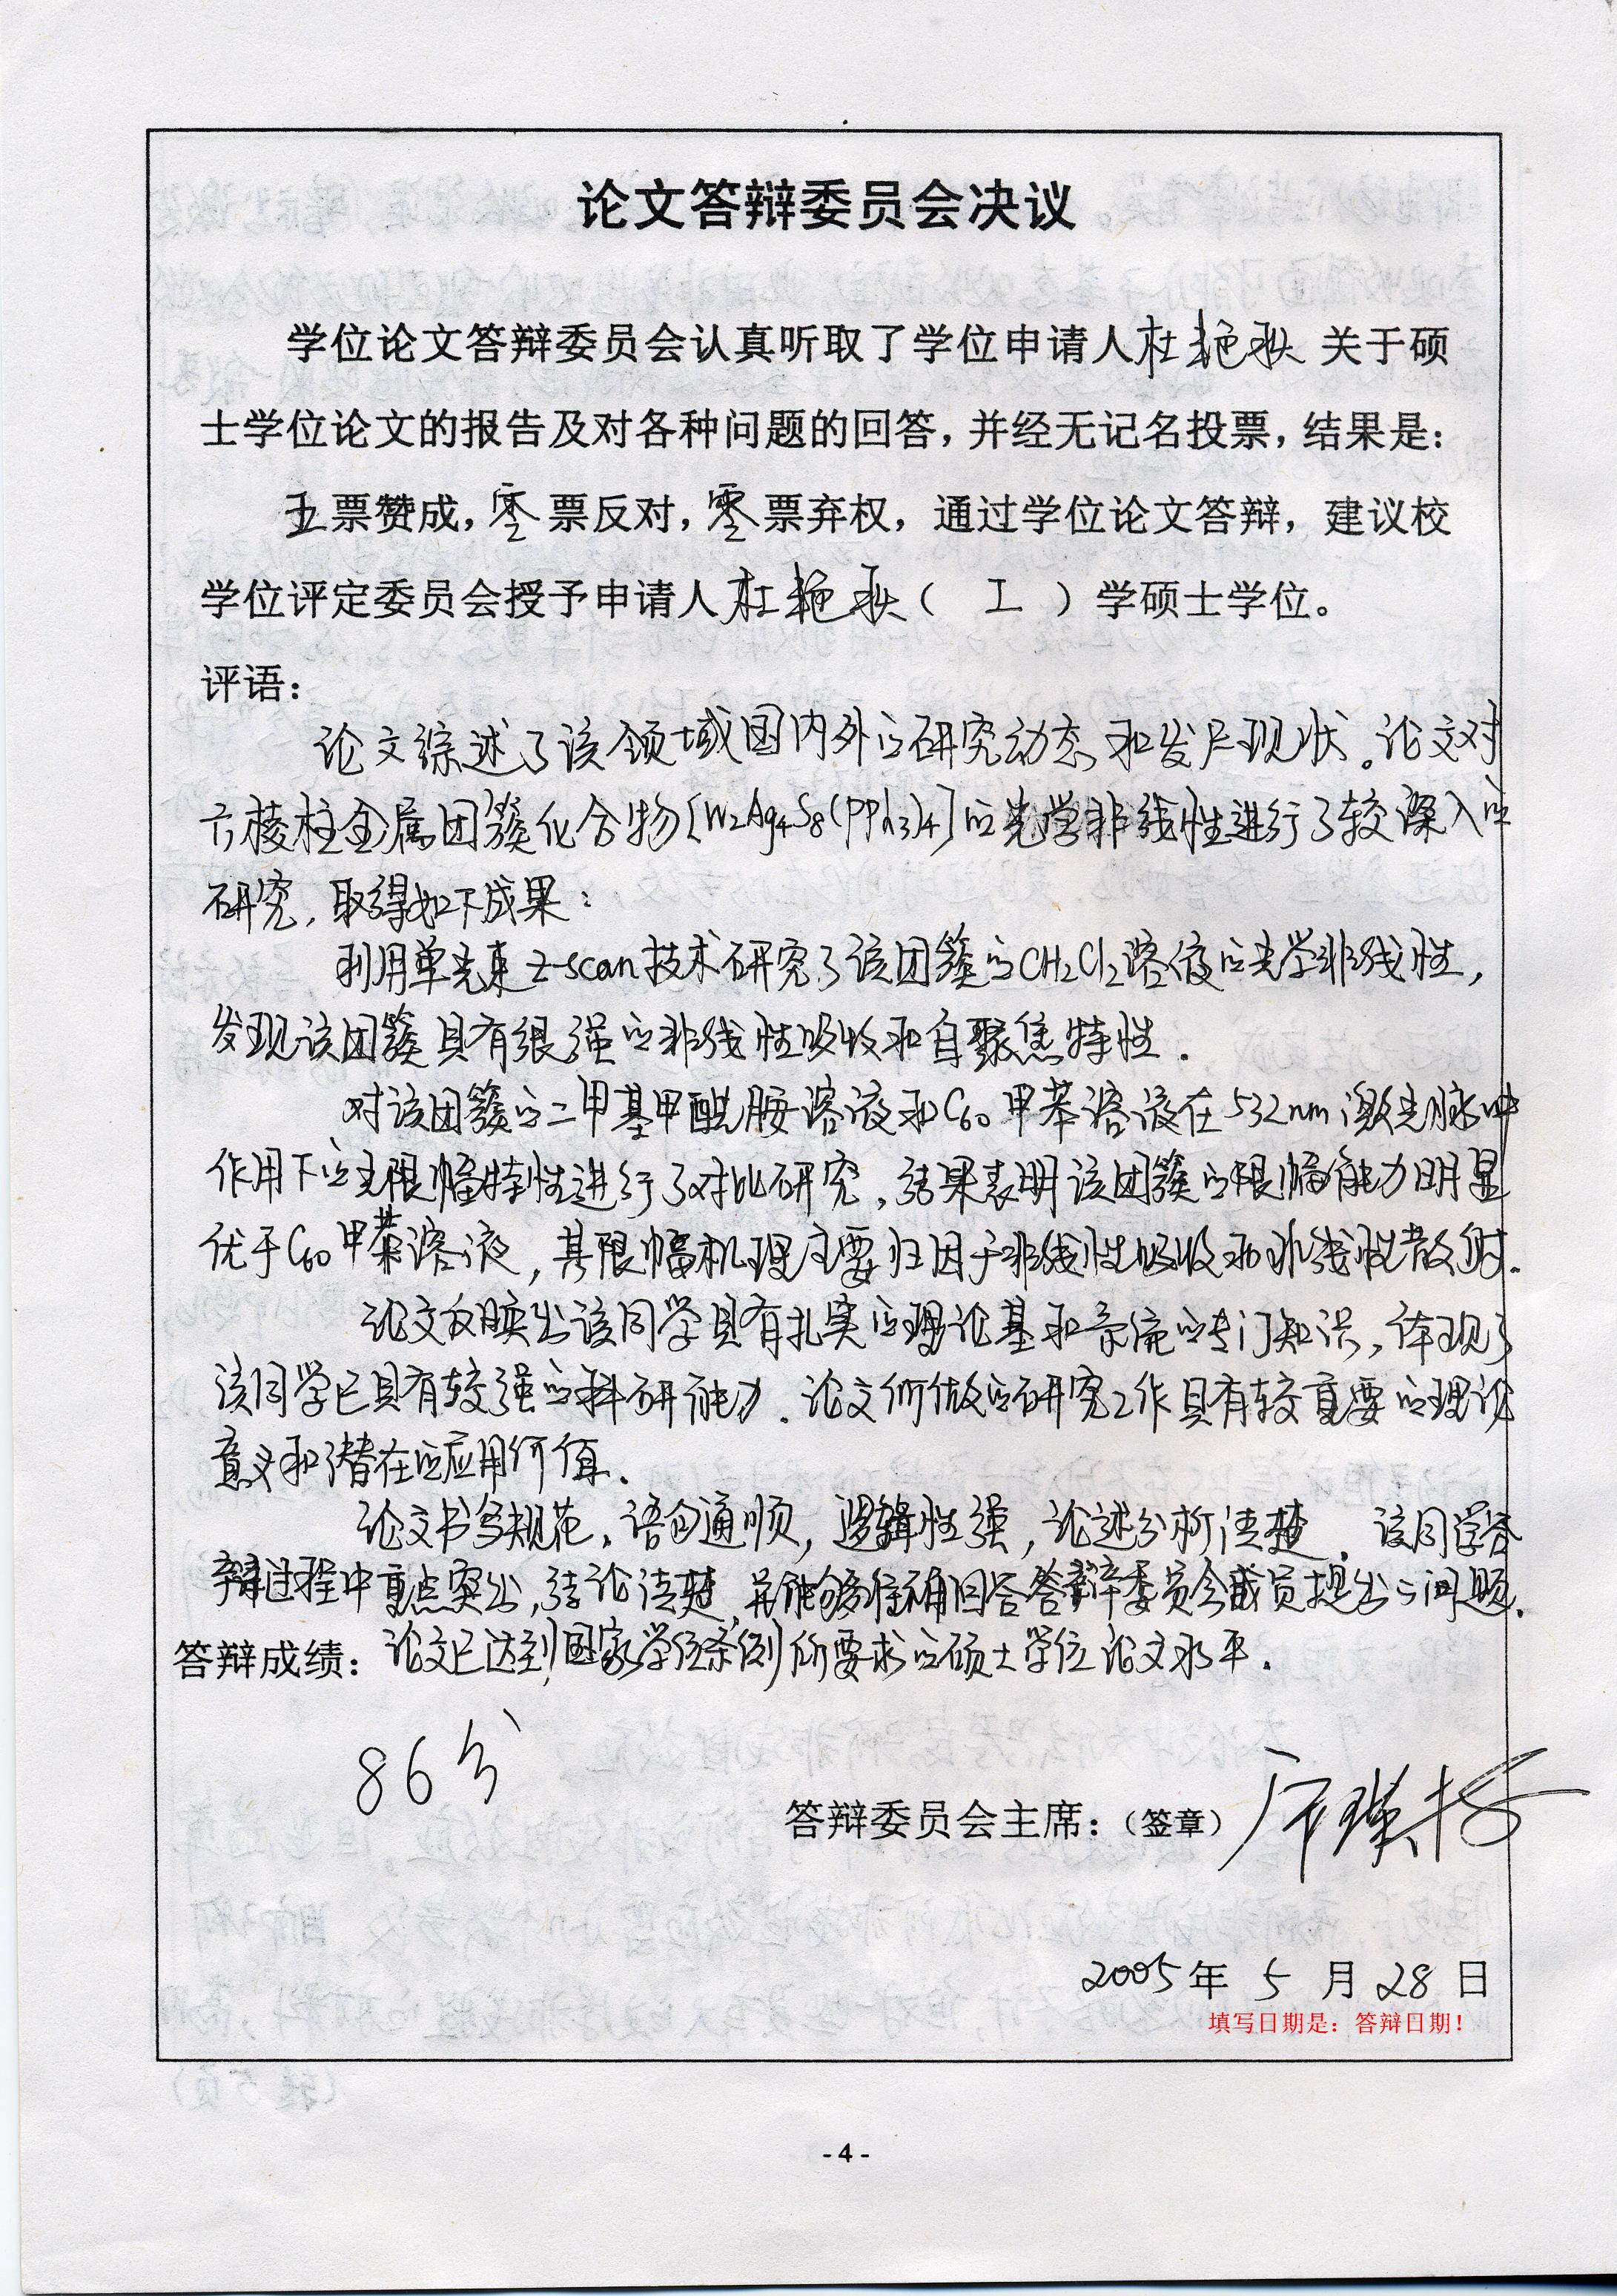 论文答辩委员会决议
学位论文答辩委员会认真听取了学位申请人杜艳秋关于硕
士学位论文的报告及对各种问题的回答，并经无记名投票，结果是：
五票赞成，零票反对，零票弃权，通过学位论文答辩，建议校
学位评定委员会授予申请人杜艳秋（ 工 ）学硕士学位。
评语：
论文综述了该领域国内外的研究动态和发展现状。论文对
六棱柱金属团簇化合物[W₂Ag₄S₈(PPh₃)₄]的光学非线性进行了较深入的
研究，取得如下成果：
利用单光束z-scan技术研究了该团簇的CH₂Cl₂溶液的光学非线性，
发现该团簇具有很强的非线性吸收和自聚焦特性.
对该团簇的二甲基甲酰胺溶液和C₆₀甲苯溶液在532nm激光脉冲
作用下的光限幅特性进行了对比研究，结果表明该团簇的限幅能力明显
优于C₆₀甲苯溶液，其限幅机理主要归因于非线性吸收和非线性散射.
论文反映出该同学具有扎实的理论基和系统的专门知识，体现了
该同学已具有较强的科研能力.论文所做的研究工作具有较重要的理论
意义和潜在的应用价值.
论文书写规范，语句通顺，逻辑性强，论述分析清楚.该同学答
辩过程中重点突出，结论清楚，并能够准确回答答辩委员会成员提出的问题.
答辩成绩：论文已达到国家学位条例所要求的硕士学位论文水平.
86分
答辩委员会主席：（签章）
2005年 5 月 28 日
填写日期是：答辩日期！
- 4 -